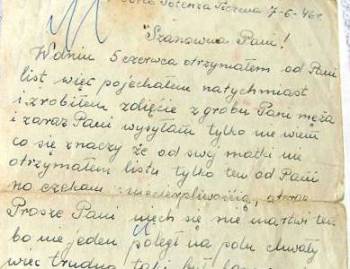 Potenza Picena 7-6-46 r.
"Szanowna Pani!
W dniu 5 czerwca otrzymałem od Pani
list więc pojechałem natychmiast
i zrobiłem zdjęcie z grobu Pani męża
i zaraz Pani wysyłam tylko nie wiem
co się znaczy że od swy matki nie
otrzymałem listu tylko ten od Pani
no czekam z niecierpliwością,
Proszę Pani niech się nie martwi ten
bo nie jeden poległ na polu chwały
więc trudno taki był